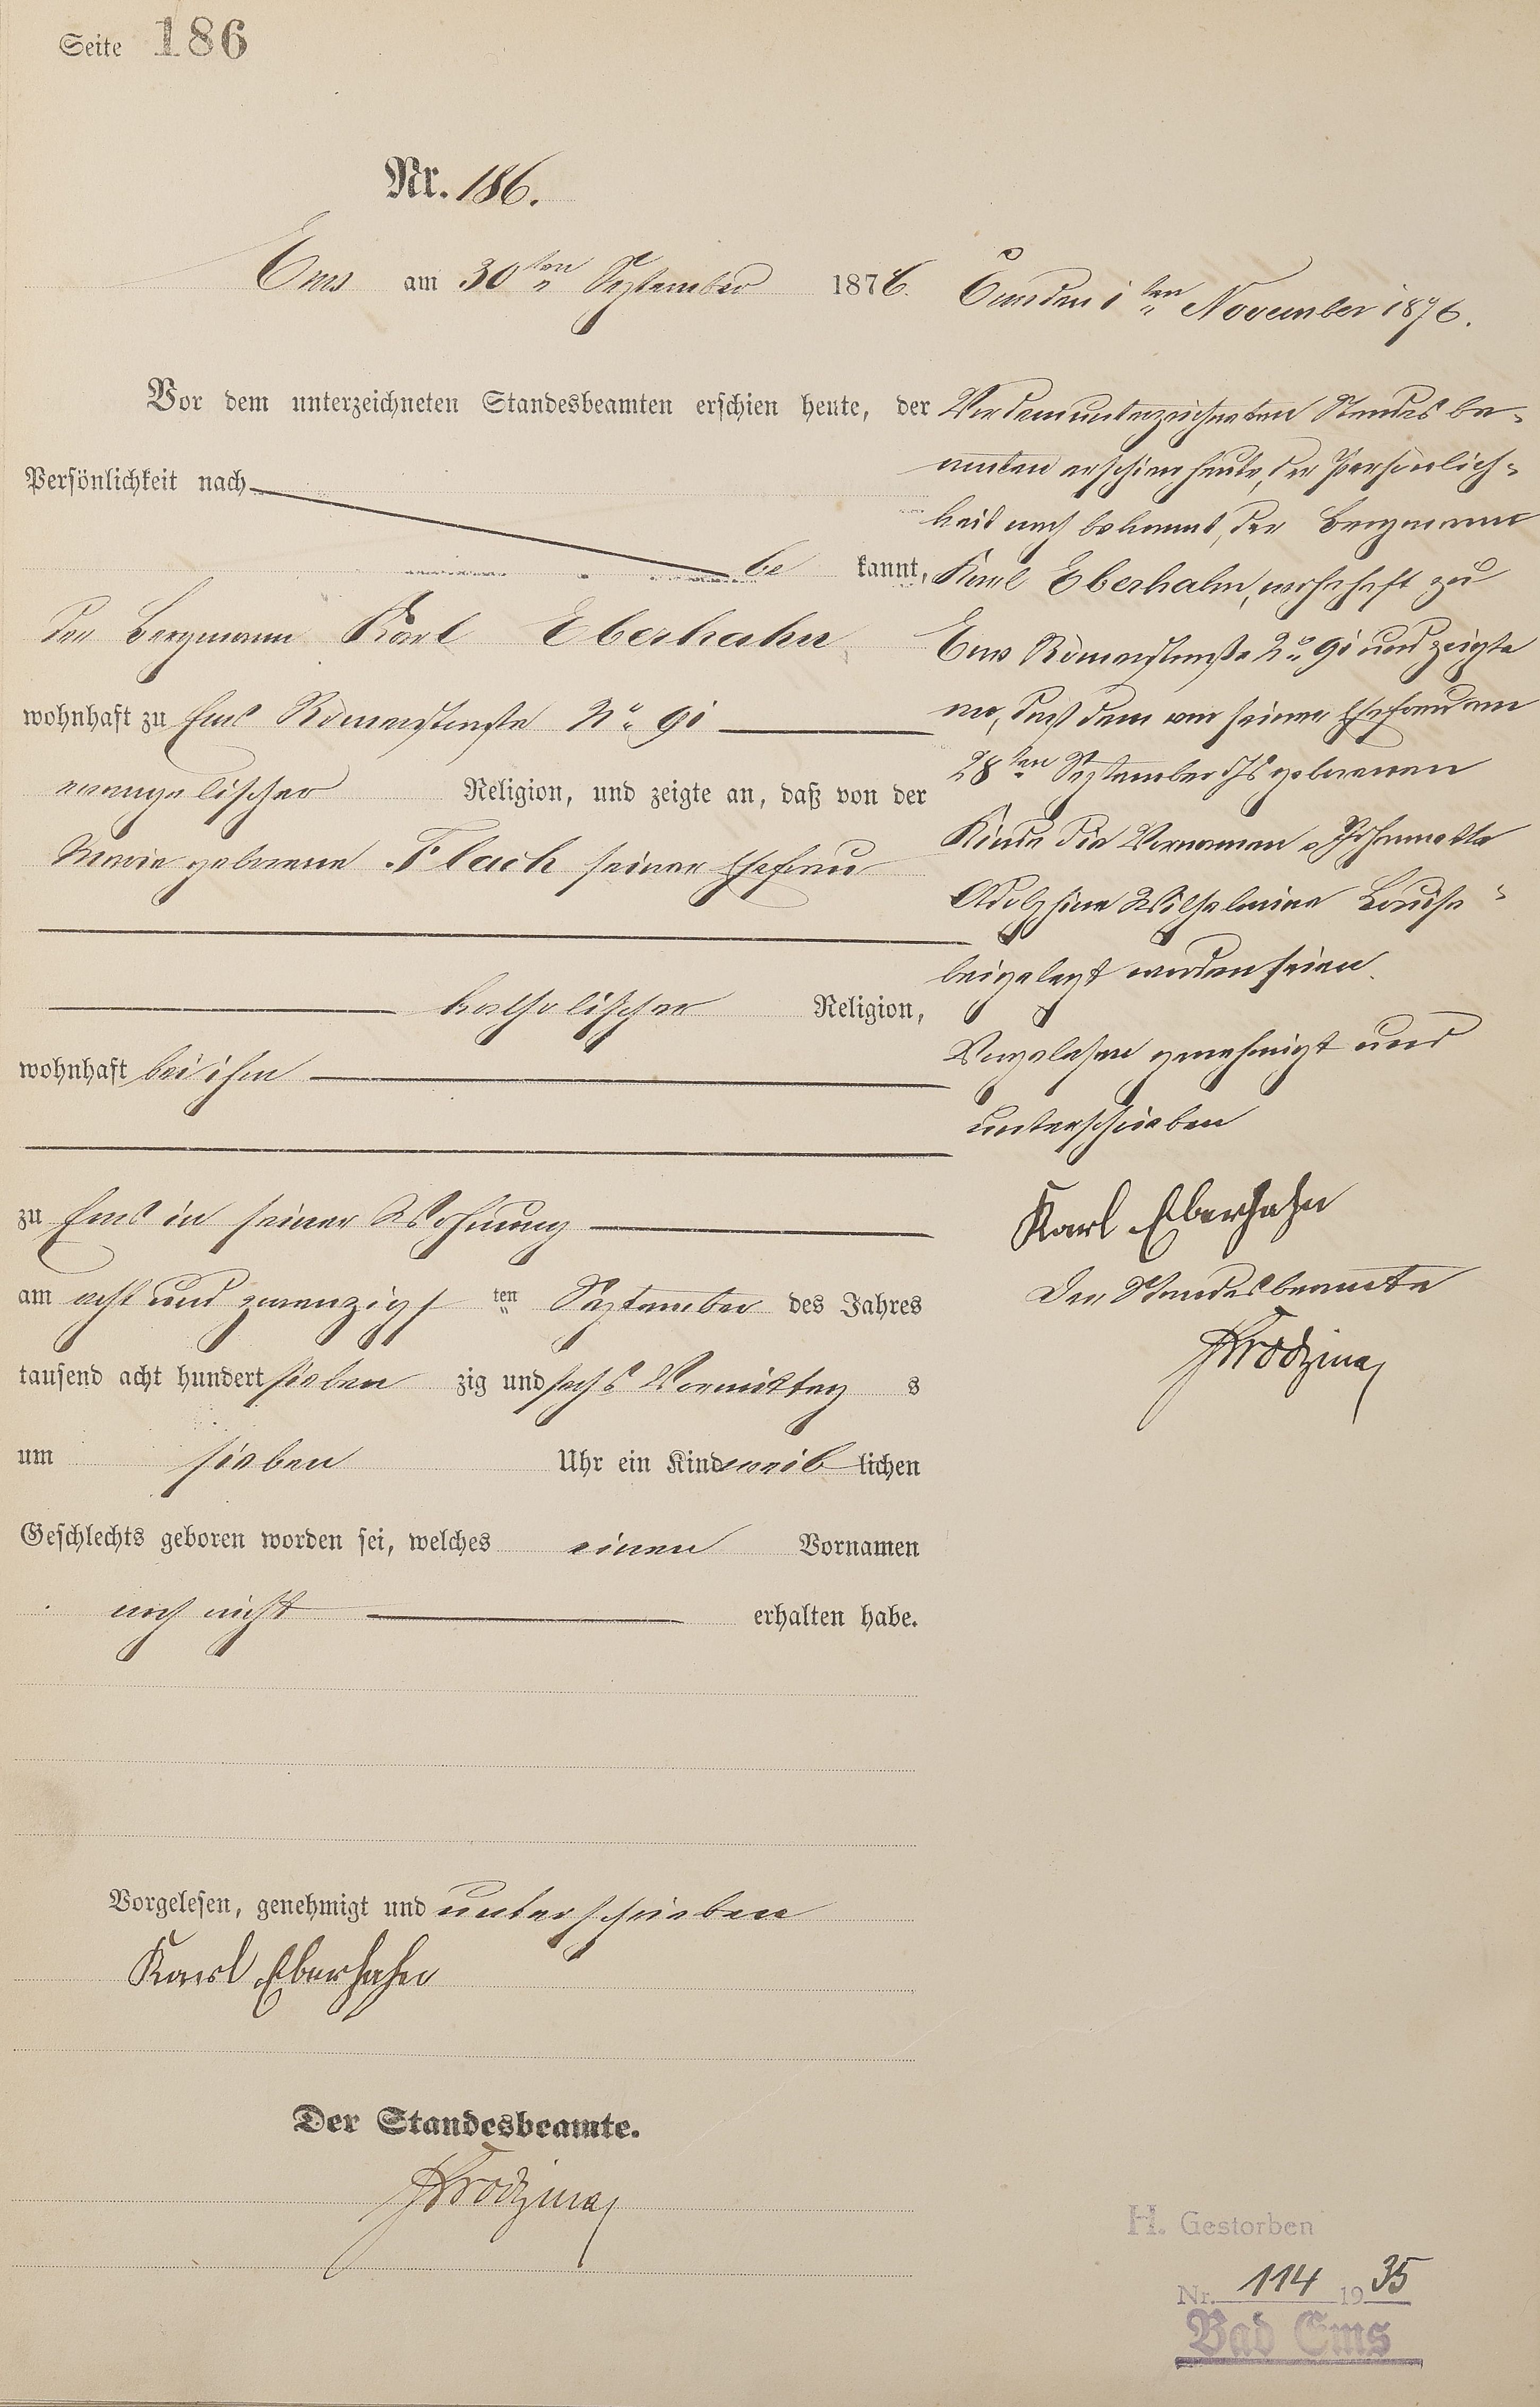 Seite 186
Nr. 186.
Ems am 30ten September 1876.
Vor dem unterzeichneten Standesbeamten erschien heute, der
Persönlichkeit nach
be kannt,
der Bergmann Karl Eberhahn
wohnhaft zu Ems Römerstraße No 91
evangelischer Religion, und zeigte an, daß von der
Marie geborene Flach seiner Ehefrau
katholischer Religion,
wohnhaft bei ihm
zu Ems in seiner Wohnung
am acht und zwanzigsten September des Jahres
tausend acht hundert sieben zig und sechs Vormittag s
um sieben Uhr ein Kind weib lichen
Geschlechts geboren worden sei, welches einen Vornamen
noch nicht erhalten habe.
Vorgelesen, genehmigt und unterschrieben
Karl Eberhahn
Der Standesbeamte.
Ems den 1ten November 1876.
Vor dem unterzeichneten Standesbe-
amten erschien heute, der Persönlich-
keit nach bekannt, der Bergmann
Karl Eberhahn, wohnhaft zu
Ems Römerstraße No 91 und zeigte
an, daß dem von seiner Ehefrau am
28ten September d Js geborenen
Kinde die Vornamen "Johannette
Adolphine Wilhelmine Louise"
beigelegt worden seien.
Vorgelesen genehmigt und
unterschrieben
Karl Eberhahn
Der Standesbeamte
H. Gestorben
Nr. 114 1935
Bad Ems